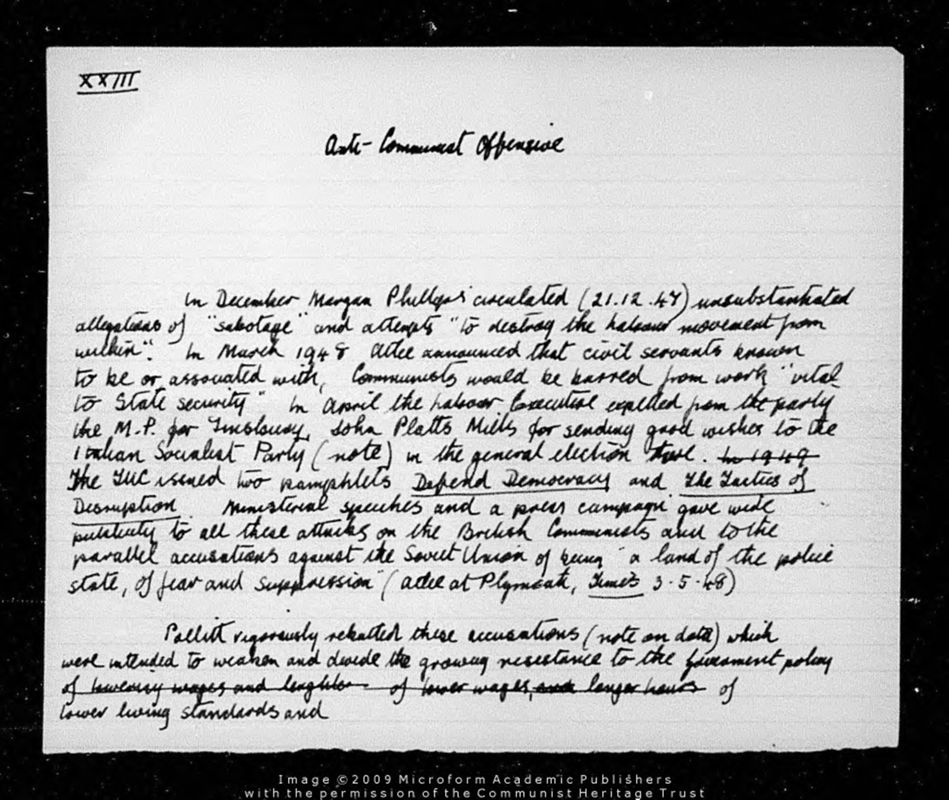 XXIII
Anti-Communist Offensive
In December Morgan Phillips circulated (21.12.47) unsubstantiated
allegations of "sabotage" and attempts "to destroy the labour movement from
within". In March 1948 Attlee announced that civil servants known
to be or associated with, Communists would be barred from work "vital
to State security" In April the Labour Executive expelled from the party
the M.P. for Finsbury, John Platts Mills for sending good wishes to the
Italian Socialist Party (note) in the general election there. In 1949
The TUC issued two pamphlets Defend Democracy and The Tactics of
Disruption. Ministerial speeches and a press campaign gave wide
publicity to all these attacks on the British Communists and to the
parallel accusations against the Soviet Union of being "a land of the police
state, of fear and suppression (Attlee at Plymouth, Times 3.5.48)
Pollitt vigorously rebutted these accusations (note on data) which
were intended to weaken and divide the growing resistance to the Government policy
of lowering wages and of lower wages, and longer hours of
lower living standards and
Image ©2009 Microform Academic Publishers
with the permission of the Communist Heritage Trust